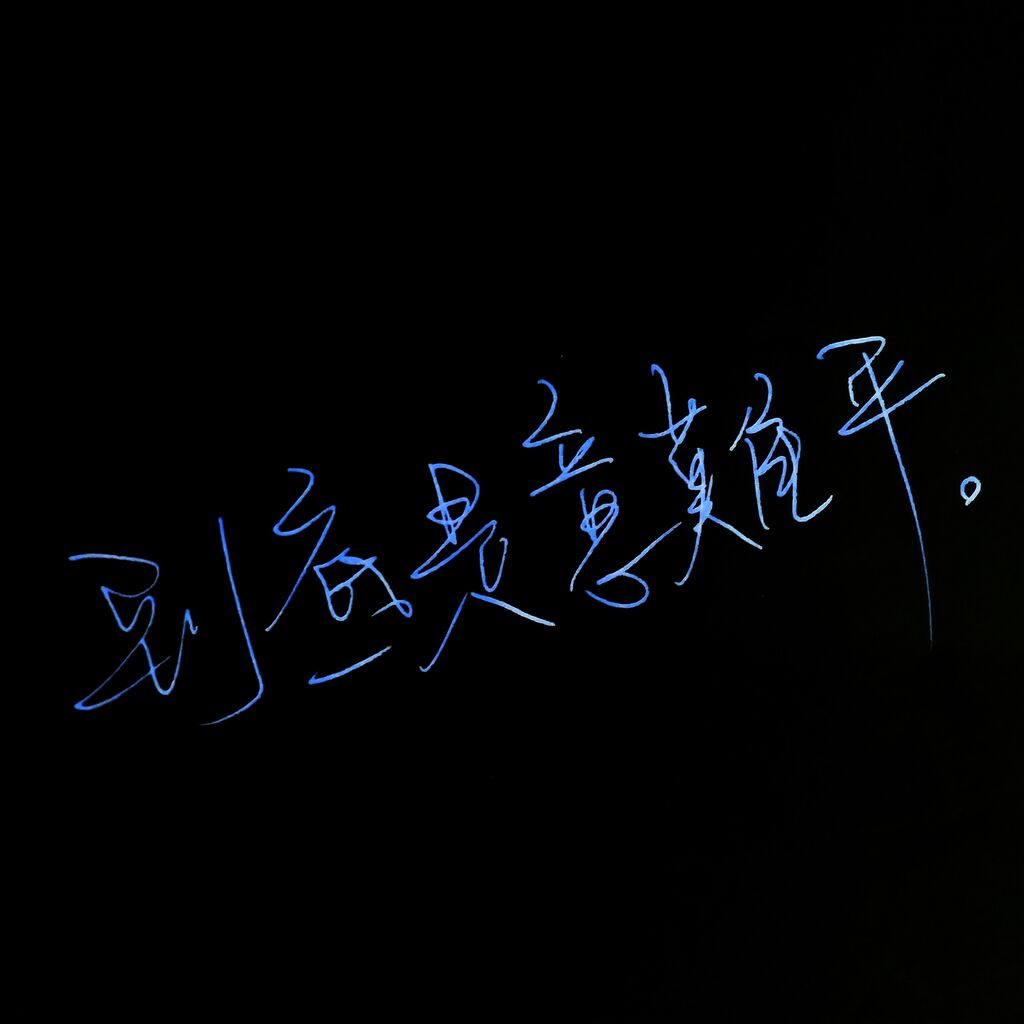 到底是意難平。